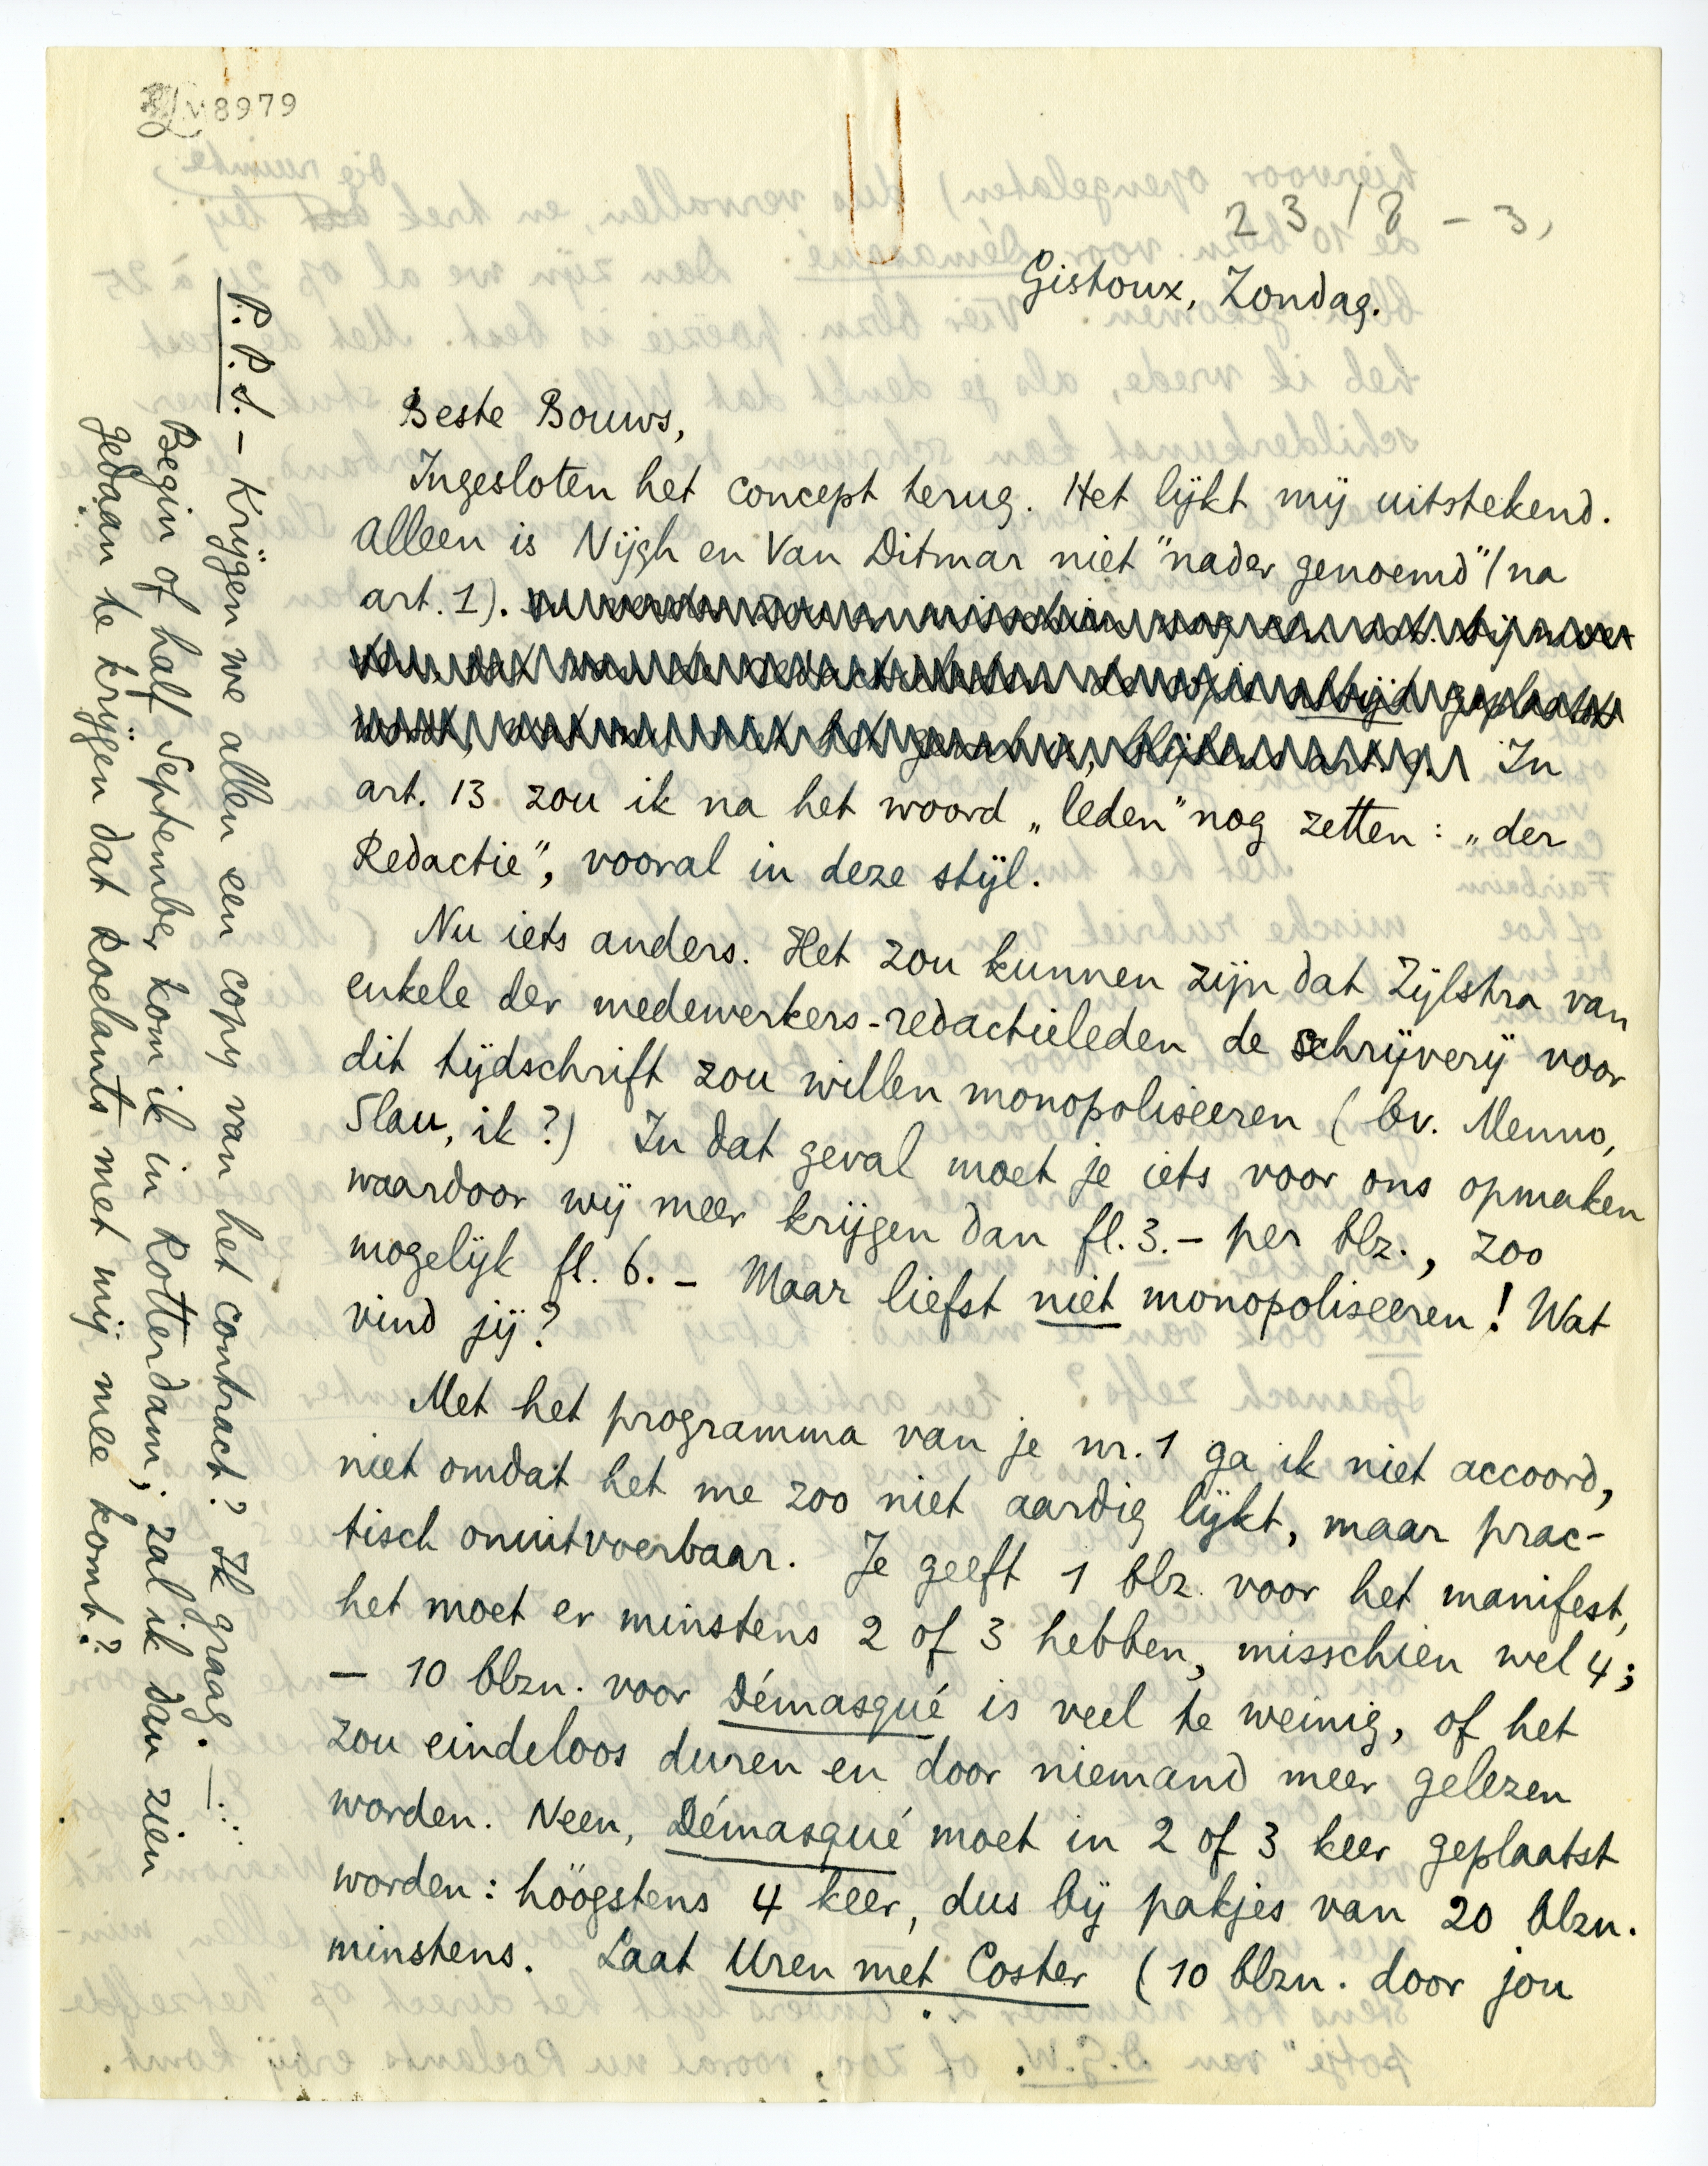 8979
23/8-3,
Gistoux, Zondag.
Beste Bouws,
Ingesloten het concept terug. Het lijkt mij uitstekend.
Alleen is Nijgh en Van Ditmar niet "nader genoemd" (na
art. 1). In
art. 13 zou ik na het woord „leden" nog zetten: „der
Redactie", vooral in deze stijl.
Nu iets anders. Het zou kunnen zijn dat Zijlstra van
enkele der medewerkers-redactieleden de schrijverij voor
dit tijdschrift zou willen monopoliseeren (bv. Menno,
Slau, ik?) In dat geval moet je iets voor ons opmaken
waardoor wij meer krijgen dan fl. 3.- per blz., zoo
mogelijk fl. 6. - Maar liefst niet monopoliseeren! Wat
vind jij?
Met het programma van je nr. 1 ga ik niet accoord,
niet omdat het me zoo niet aardig lijkt, maar prac-
tisch onuitvoerbaar. Je geeft 1 blz. voor het manifest,
het moet er minstens 2 of 3 hebben, misschien wel 4;
— 10 blzn. voor Démasqué is veel te weinig, of het
zou eindeloos duren en door niemand meer gelezen
worden. Neen, Démasqué moet in 2 of 3 keer geplaatst
worden: hoogstens 4 keer, dus bij pakjes van 20 blzn.
minstens. Laat Uren met Coster (10 blzn. door jou
P.P.S. — Krijgen we allen een copy van het contract? Ik graag. —
Begin of half September kom ik in Rotterdam; zal ik dan zien
gedaan te krijgen dat Roelants met mij mee komt?